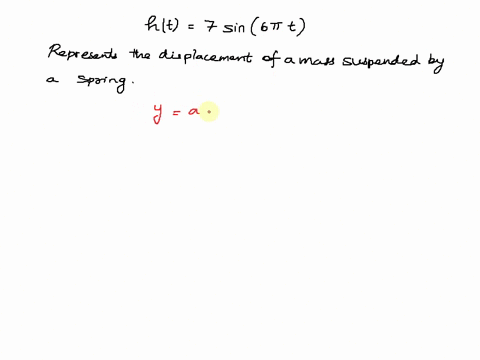 h(t) = 7 sin(6π t)
Represents the displacement of a mass suspended by
a spring.
y = a